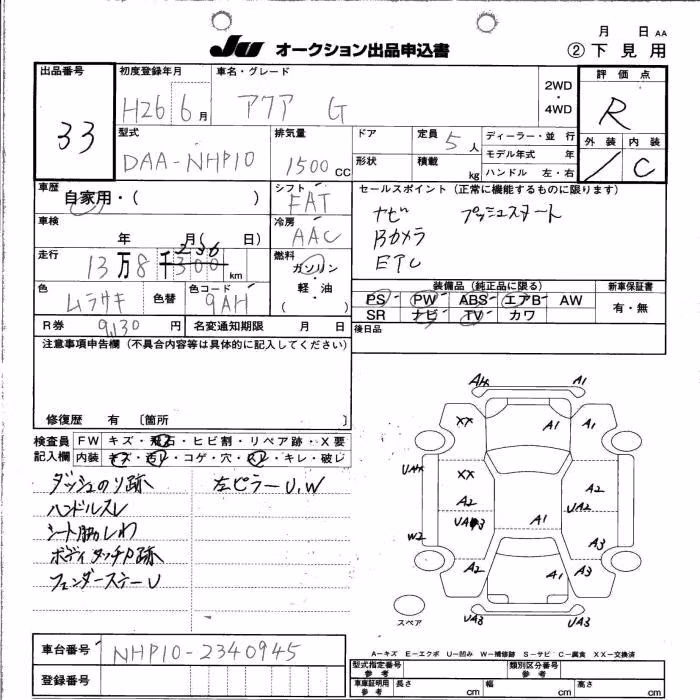 月 日 AA
JU オークション出品申込書 ②下見用
出品番号 33
初度登録年月 H26 6月
車名・グレード アクア G
2WD・4WD
評価点 R
外装 内装 C
型式 DAA-NHP10
排気量 1500cc
ドア
定員 5人
ディーラー・並 行
モデル年式 年
形状
積載 kg
ハンドル 左・右
車歴 自家用・( )
シフト FAT
セールスポイント(正常に機能するものに限ります)
ナビ プッシュスタート
Bカメラ
ETC
車検 年 月( 日)
冷房 AAC
走行 13万8千300km
236
燃料 ガソリン・軽・油 ( )
色 ムラサキ 色替
色コード 9AH
装備品(純正品に限る)
新車保証書
PS PW ABS エアB AW
SR ナビ TV カワ
有・無
R券 9130円
名変通知期限 月 日
後日品
注意事項申告欄(不具合内容等は具体的に記入してください)
修復歴 有 〔箇所 〕
検査員記入欄
FW キズ・飛石・ヒビ割・リペア跡・X要
内装 キズ・汚レ・コゲ・穴・スレ・キレ・破レ
ダッシュのり跡 左ピラーU,W
ハンドルスレ
シート脇しわ
ボディタッチP跡
フェンダーステーU
A1
XX A1 A1
XX A2
A2 UA2
UA3 A1
W2 A3
A2 A1 A3
スペア UA3 UA3
車台番号 NHP10-2340945
登録番号
A-キズ E-エクボ U-凹み W-補修跡 S-サビ C-腐食 XX-交換済
型式指定番号 参考
類別区分番号 参考
車庫証明用 参考 長さ cm 幅 cm 高さ cm